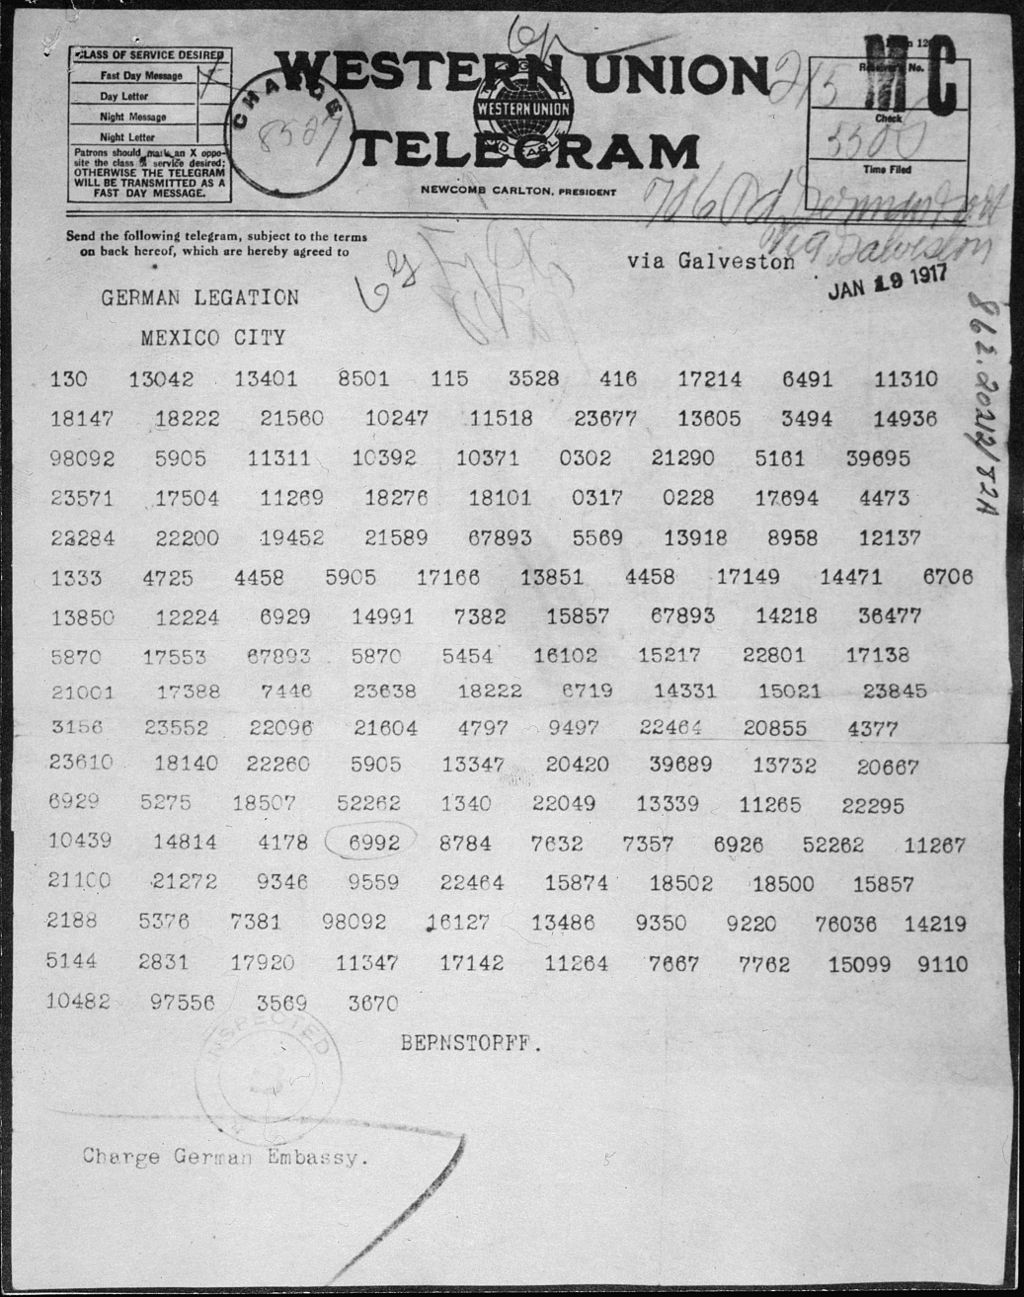 CLASS OF SERVICE DESIRED
Fast Day Message
Day Letter
Night Message
Night Letter
Patrons should mark an X oppo-
site the class of service desired;
OTHERWISE THE TELEGRAM
WILL BE TRANSMITTED AS A
FAST DAY MESSAGE.
CHARGE
WESTERN UNION
WESTERN UNION
TELEGRAM
NEWCOMB CARLTON, PRESIDENT
Receiver's No.
Check
Time Filed
Send the following telegram, subject to the terms
on back hereof, which are hereby agreed to
via Galveston
via Galveston
JAN 19 1917
GERMAN LEGATION
MEXICO CITY
130 13042 13401 8501 115 3528 416 17214 6491 11310
18147 18222 21560 10247 11518 23677 13605 3494 14936
98092 5905 11311 10392 10371 0302 21290 5161 39695
23571 17504 11269 18276 18101 0317 0228 17694 4473
22284 22200 19452 21589 67893 5569 13918 8958 12137
1333 4725 4458 5905 17166 13851 4458 17149 14471 6706
13850 12224 6929 14991 7382 15857 67893 14218 36477
5870 17553 67893 5870 5454 16102 15217 22801 17138
21001 17388 7446 23638 18222 6719 14331 15021 23845
3156 23552 22096 21604 4797 9497 22464 20855 4377
23610 18140 22260 5905 13347 20420 39689 13732 20667
6929 5275 18507 52262 1340 22049 13339 11265 22295
10439 14814 4178 6992 8784 7632 7357 6926 52262 11267
21100 21272 9346 9559 22464 15874 18502 18500 15857
2188 5376 7381 98092 16127 13486 9350 9220 76036 14219
5144 2831 17920 11347 17142 11264 7667 7762 15099 9110
10482 97556 3569 3670
BEPNSTOPFF.
INSPECTED
Charge German Embassy.
862.20212/82A